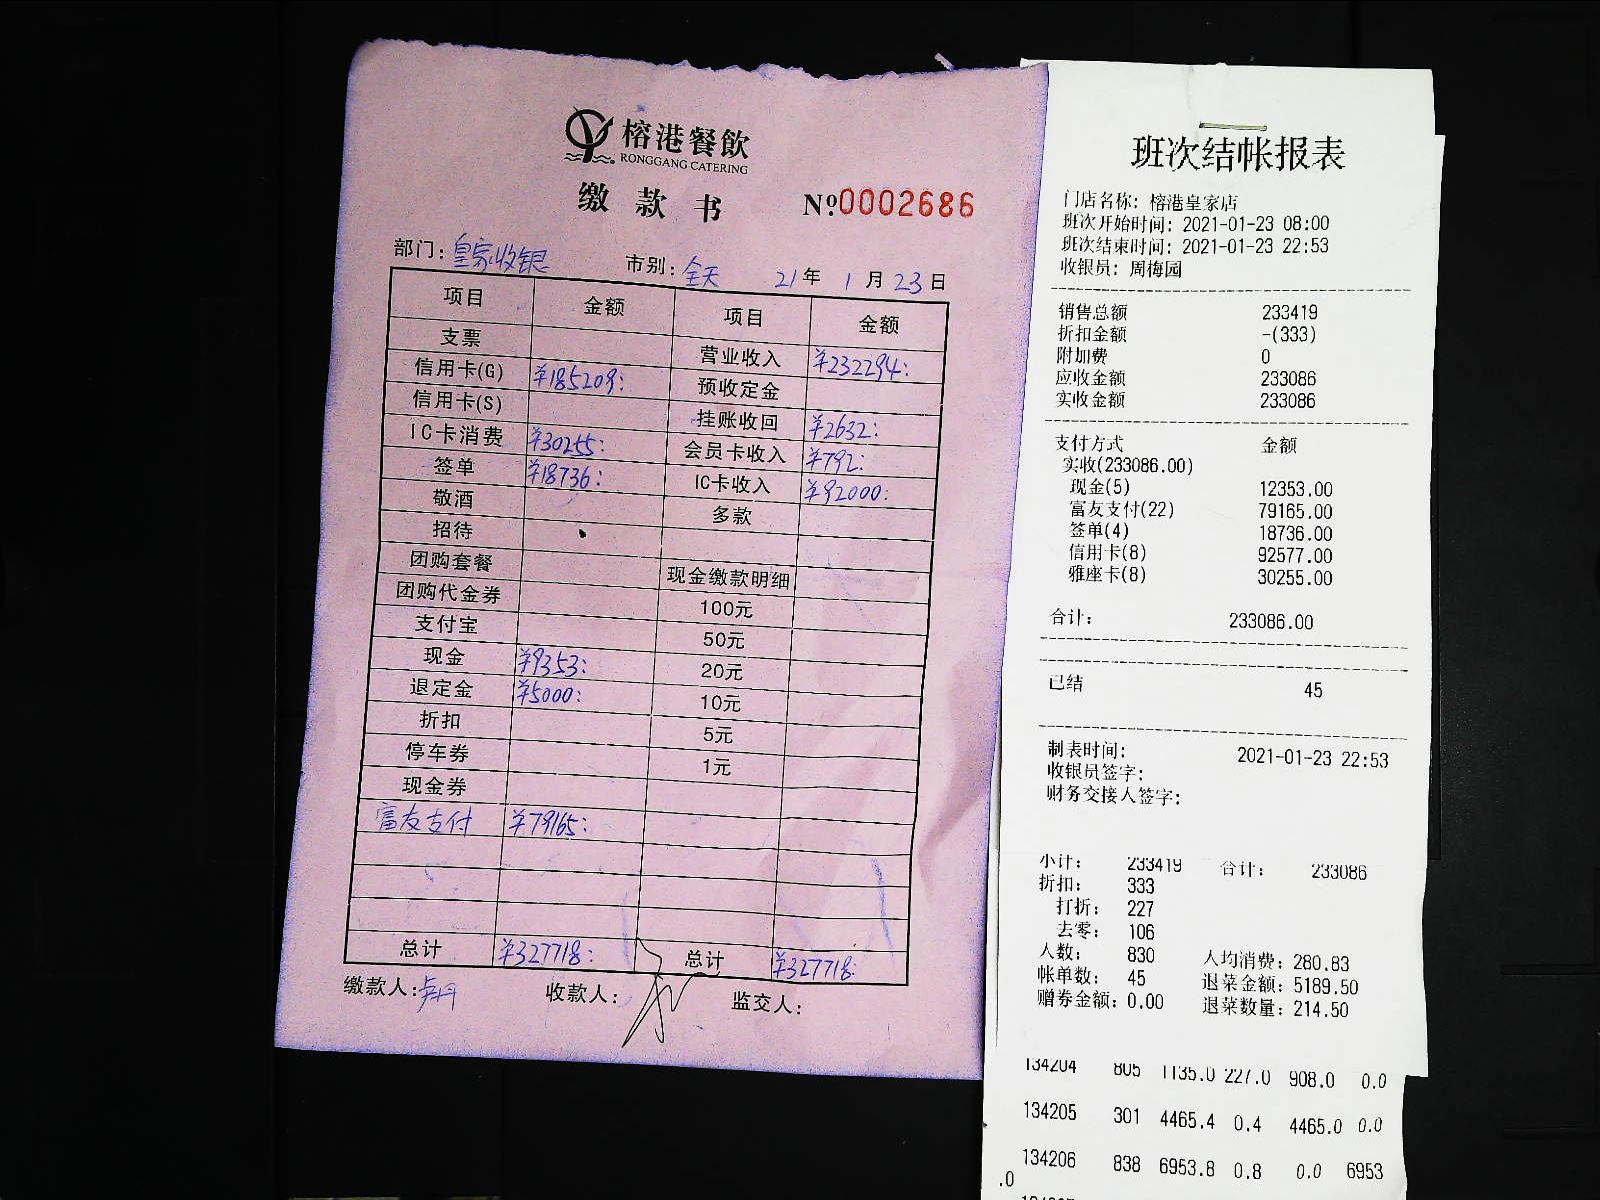 榕港餐飲
RONGGANG CATERING
缴款书 №0002686
部门：皇家收银 市别：全天 21年1月23日
项目 金额 项目 金额
支票 营业收入 ¥232294:
信用卡(G) ¥185209: 预收定金
信用卡(S) 挂账收回 ¥2632:
IC卡消费 ¥30255: 会员卡收入 ¥792:
签单 ¥18736: IC卡收入 ¥92000:
敬酒 多款
招待
团购套餐 现金缴款明细
团购代金券 100元
支付宝 50元
现金 ¥9353: 20元
退定金 ¥5000: 10元
折扣 5元
停车券 1元
现金券
富友支付 ¥79165:
总计 ¥327718: 总计 ¥327718:
缴款人: 收款人: 监交人:
班次结帐报表
门店名称: 榕港皇家店
班次开始时间: 2021-01-23 08:00
班次结束时间: 2021-01-23 22:53
收银员: 周梅园
销售总额 233419
折扣金额 -(333)
附加费 0
应收金额 233086
实收金额 233086
支付方式 金额
实收(233086.00)
现金(5) 12353.00
富友支付(22) 79165.00
签单(4) 18736.00
信用卡(8) 92577.00
雅座卡(8) 30255.00
合计: 233086.00
已结 45
制表时间: 2021-01-23 22:53
收银员签字:
财务交接人签字:
小计: 233419 合计: 233086
折扣: 333
打折: 227
去零: 106
人数: 830 人均消费: 280.83
帐单数: 45 退菜金额: 5189.50
赠券金额: 0.00 退菜数量: 214.50
134204 805 1135.0 227.0 908.0 0.0
134205 301 4465.4 0.4 4465.0 0.0
134206 838 6953.8 0.8 0.0 6953
.0